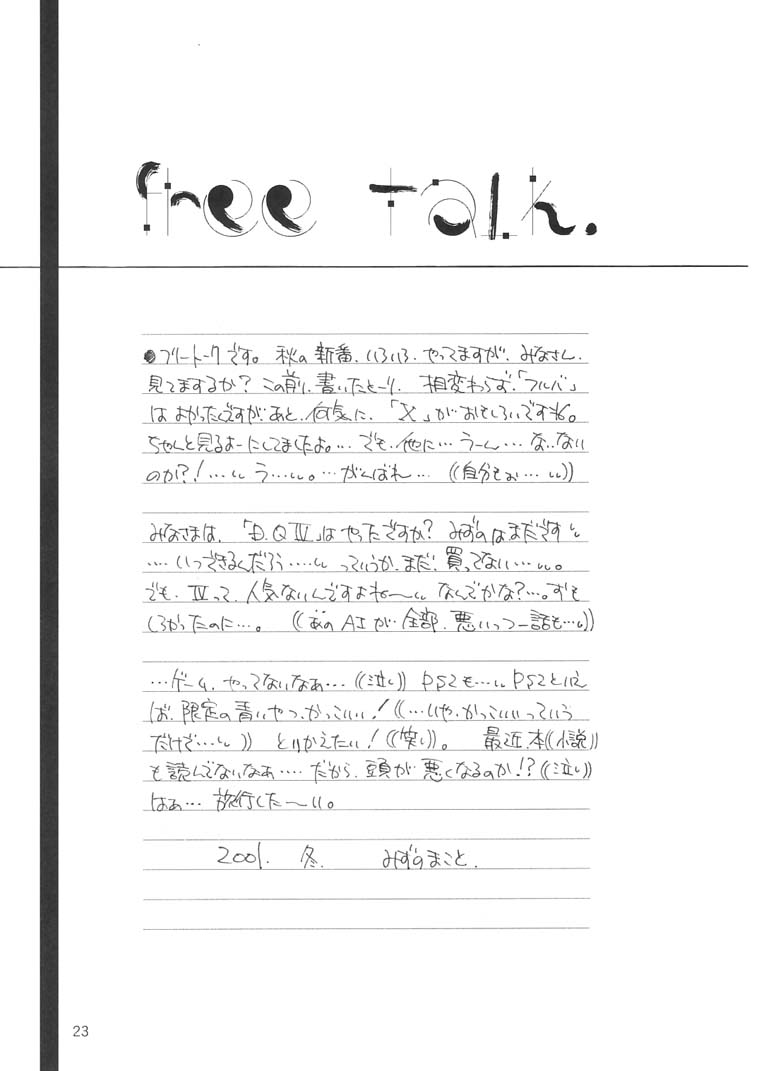 free talk.
●フリートークです。 秋の新番、いろいろ、やってますが、みなさん、
見てまするか？この前、書いたとーり、相変わらず、「フルバ」
は よかったんですが、あと、何気に、「X」が おもしろいですね。
ちゃんと見るよーにしてましたよ。… でも、他に… うーん… な‥ない
のか？！…ιι う…ιι。… がんばれ… （（自分もぉ… ιι））
みなさまは、「D.Q Ⅳ」は やったですか？ みずのは まだです ιι
…. いつできるんだろう …..ιι っていうか、まだ、買ってない… ιι。
でも、Ⅳって、人気ないんですよね〜ιι なんでかな？…。おも
しろかったのに…。 （（あの AI が‥ 全部、悪いっつー話も…ιι））
…ゲーム、やってないなぁ… （（泣い）） PS2も…ιι PS2といえ
ば、限定の青いやつ、かっこいい！（（…いや、かっこいいっていう
だけど…ιι）） とりかえたい！（（笑い））。 最近、本（（小説））
も読んでないなぁ…. だから、頭が 悪くなるのか！？（（泣い））
はぁ… 旅行した〜い。
2001. 冬. みずのまこと.
23